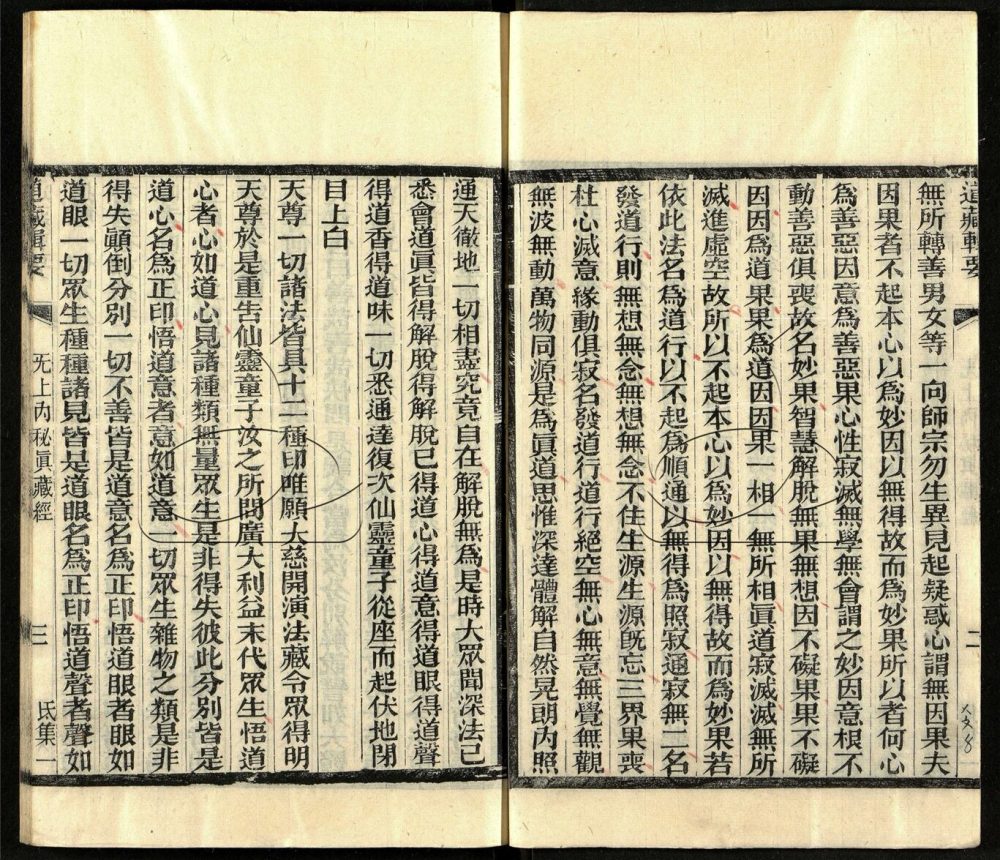 道藏輯要
二
無所轉善男女等一向師宗勿生異見起疑惑心謂無因果夫
因果者不起本心以爲妙因以無得故而爲妙果所以者何心
爲善惡因意爲善惡果心性寂滅無學無會謂之妙因意根不
動善惡俱喪故名妙果智慧解脫無果無想因不礙果果不礙
因因爲道果果爲道因因果一相一無所相眞道寂滅滅無所
滅進虛空故所以不起本心以爲妙因以無得故而爲妙果若
依此法名爲道行以不起爲順通以無得爲照寂通寂無二名
發道行則無想無念無想無念不住生源生源旣忘三界果喪
杜心滅意緣動俱寂名發道行道行絕空無心無意無覺無觀
無波無動萬物同源是爲眞道思惟深達體解自然晃朗內照
通天徹地一切相盡究竟自在解脫無爲是時大眾聞深法已
悉會道眞皆得解脫得解脫已得道心得道意得道眼得道聲
得道香得道味一切悉通達復次仙靈童子從座而起伏地閉
目上白
天尊一切諸法皆具十二種印唯願大慈開演法藏令眾得明
天尊於是重告仙靈童子汝之所問廣大利益末代眾生悟道
心者心如道心見諸種類無量眾生是非得失彼此分別皆是
道心名爲正印悟道意者意如道意一切眾生雜物之類是非
得失顚倒分別一切不善皆是道意名爲正印悟道眼者眼如
道眼一切眾生種種諸見皆是道眼名爲正印悟道聲者聲如
道藏輯要
无上內秘眞藏經
三
氐集一